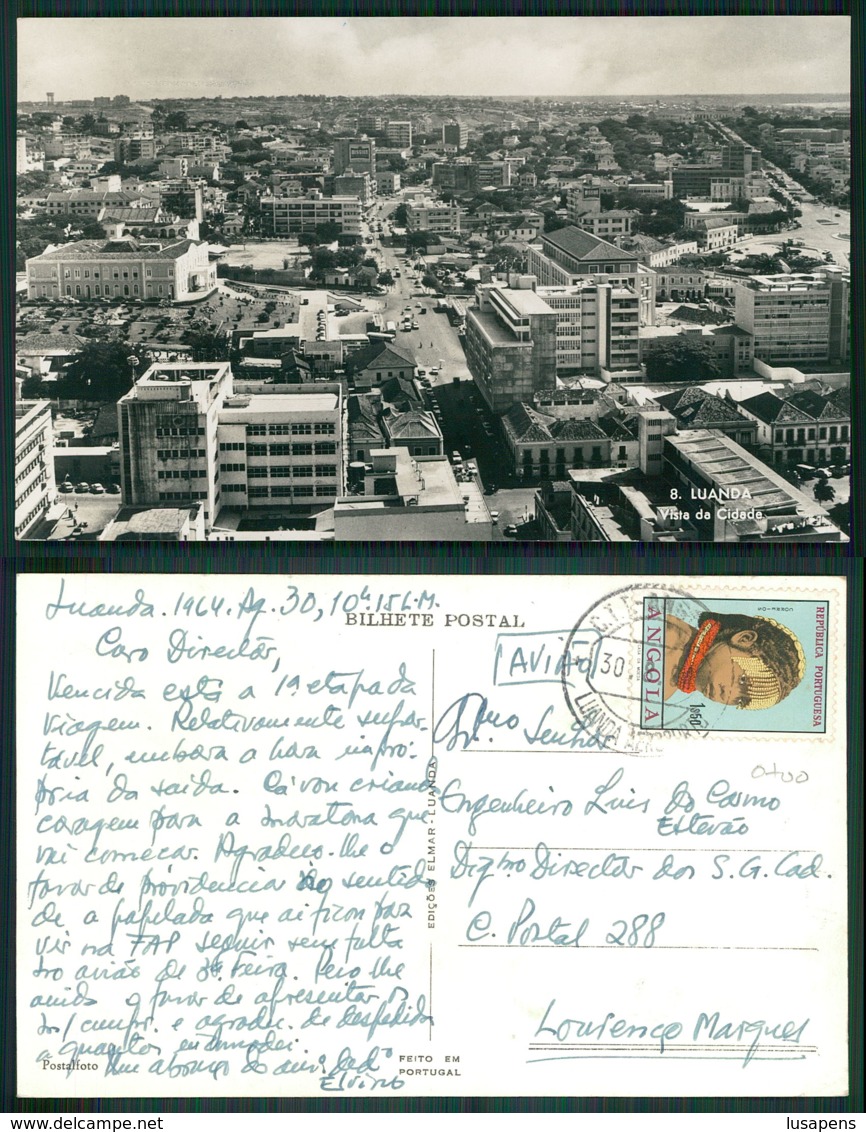 8. LUANDA
Vista da Cidade
Luanda. 1964. Ag. 30, 10h 15 L.M.
BILHETE POSTAL
Caro Director,
Vencida está a 1ª etapa da
viagem. Relativamente supor-
tável, embora a hora impró-
pria da saída. Cá vou criando
coragem para a maratona que
vai começar. Agradeço-lhe o
favor de providenciar no sentido
de a papelada que aí ficou para
vir na FAP seguir sem falta
no avião de 3ª Feira. Peço lhe
ainda o favor de apresentar os
m/ cumpr. e agradec. de despedida
a quantos
Um abraço do
Elvino
Postalfoto
EDIÇÕES ELMAR-LUANDA
FEITO EM
PORTUGAL
AVIÃO
30
LUANDA AEROPORTO
REPÚBLICA PORTUGUESA
ANGOLA
1$50
Senhor
Engenheiro Luis do Carmo
Estevão
Digmo Director dos S. G. Cad.
C. Postal 288
Lourenço Marques
lusapens